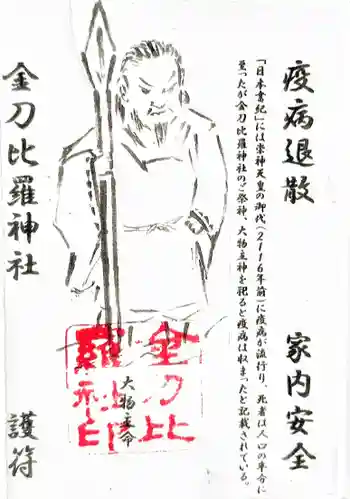 疫病退散　家内安全
「日本書紀」には崇神天皇の御代(2116年前)に疫病が流行り、死者は人口の半分に
至ったが金刀比羅神社のご祭神、大物主神を祀ると疫病は収まったと記載されている。
金刀比
羅神社印
大物主命
金刀比羅神社　護符